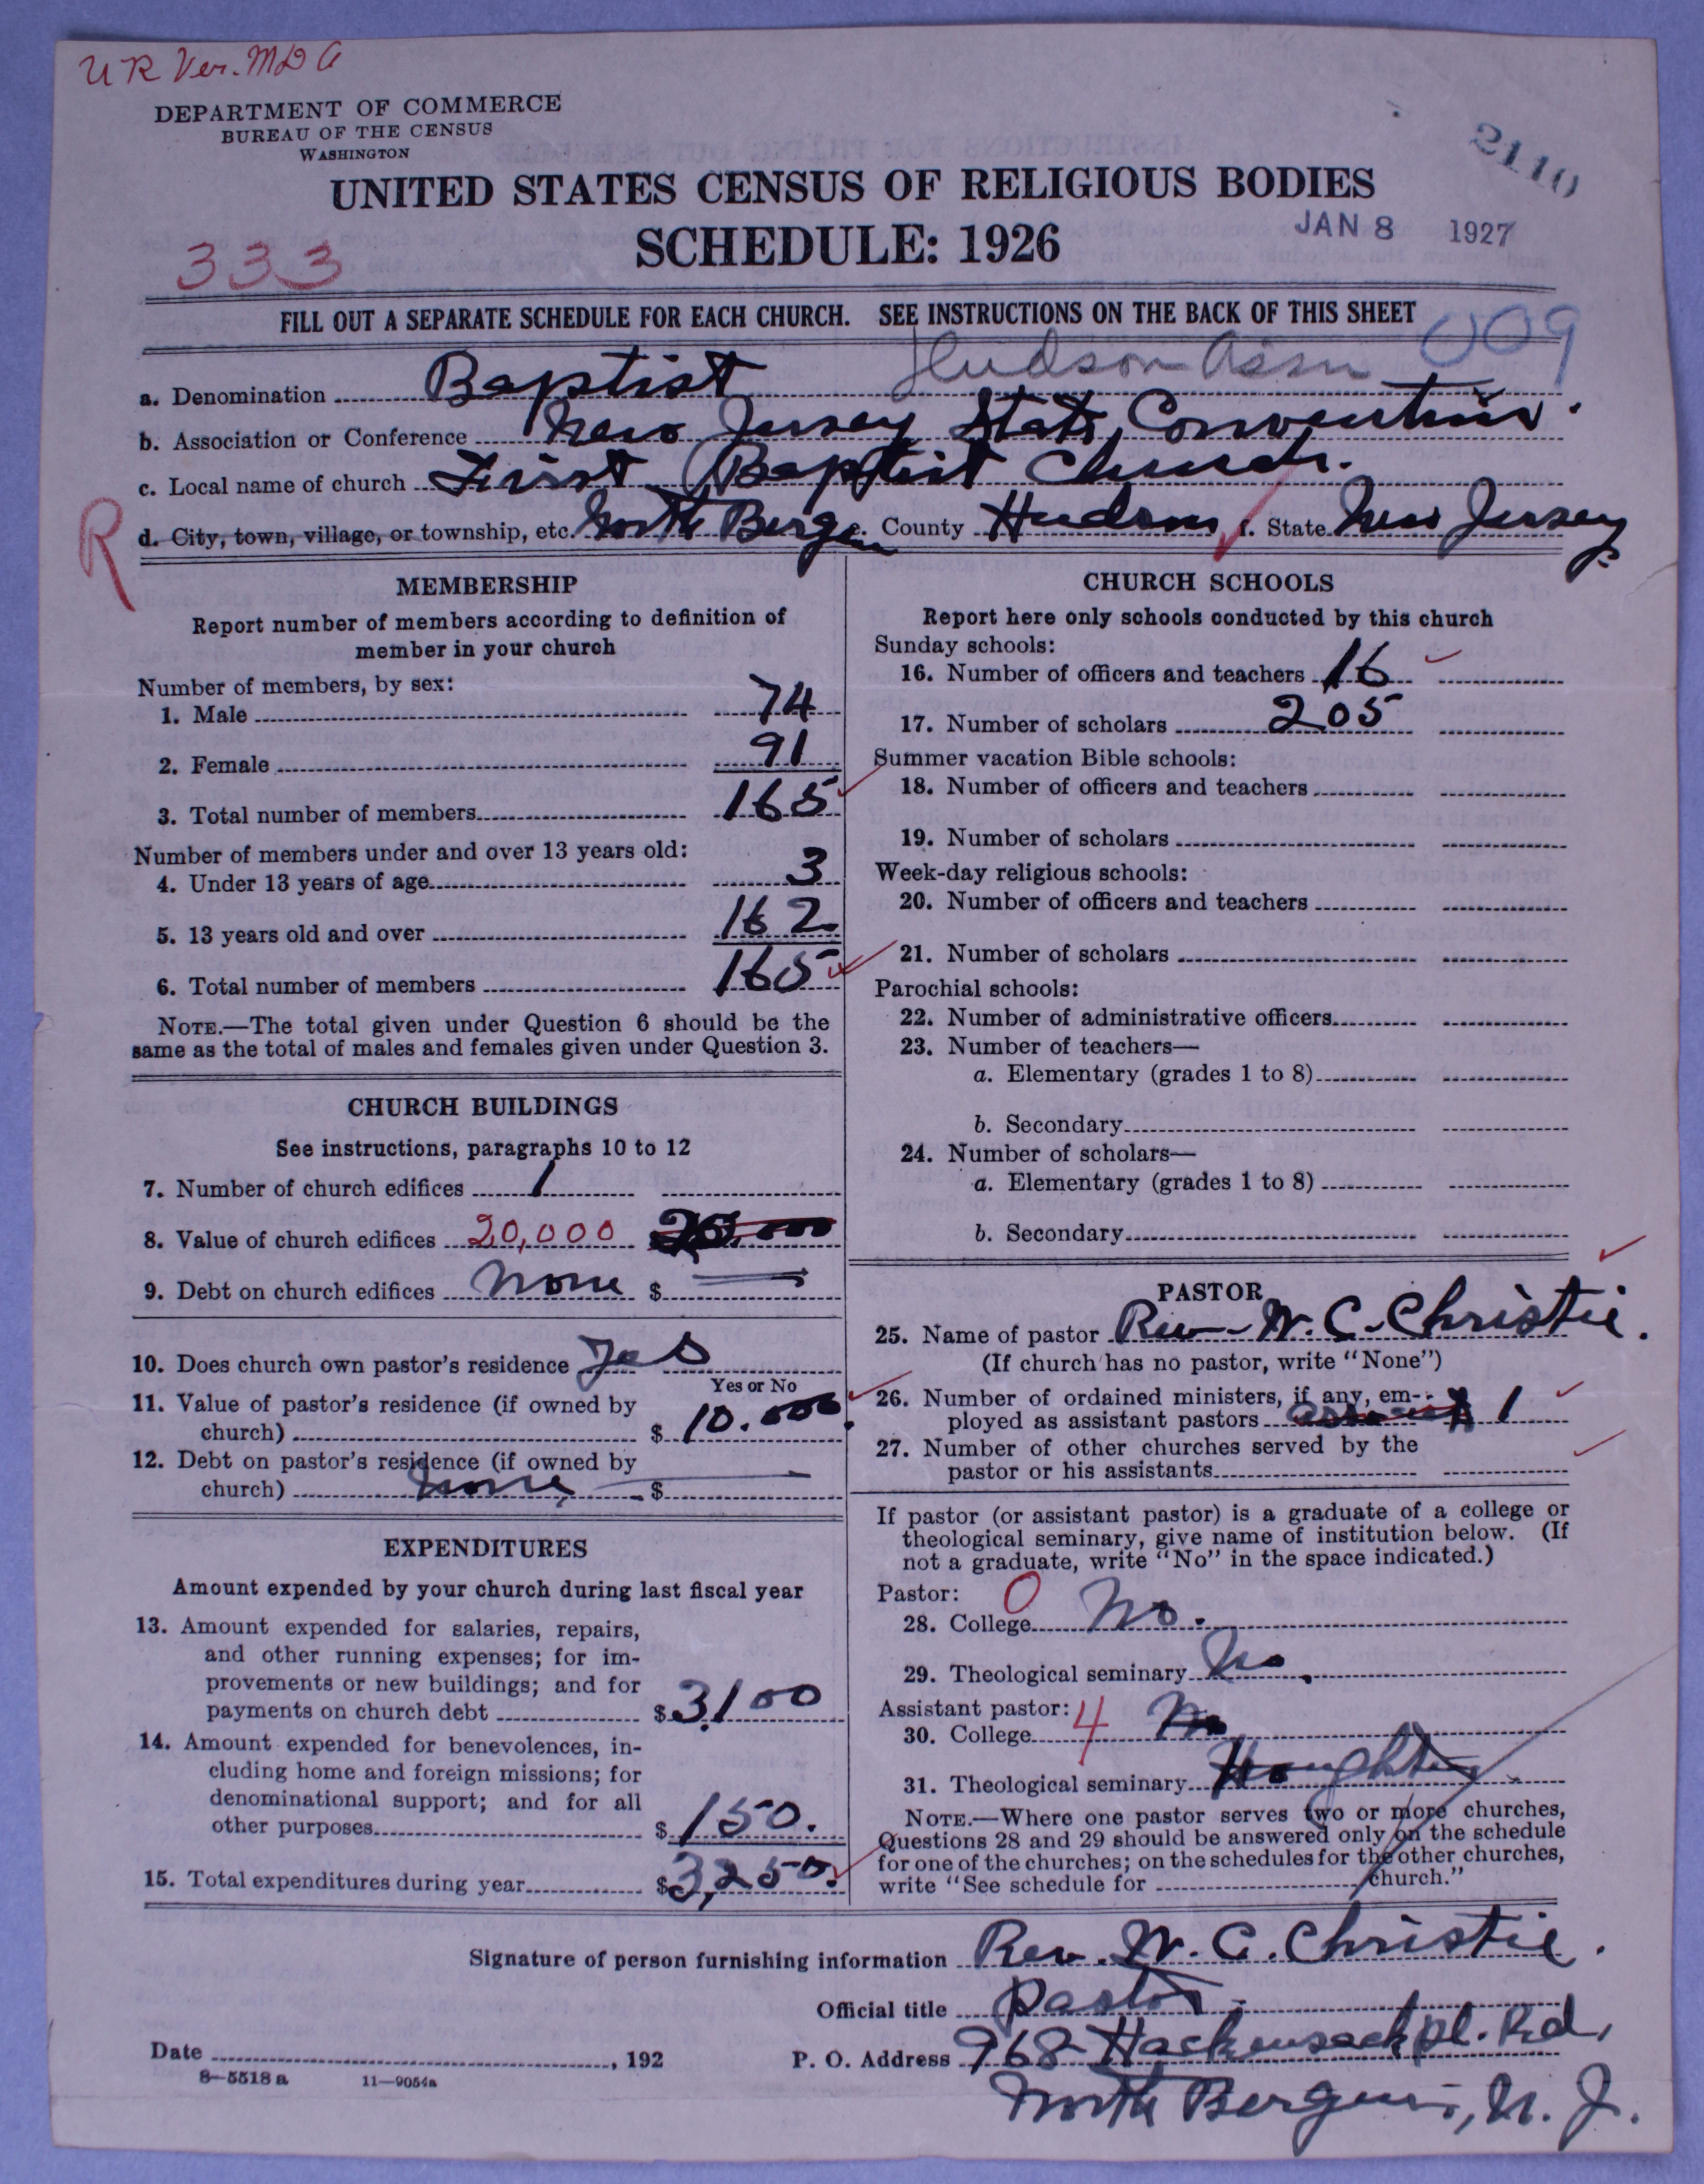 UR Ver. MDA
DEPARTMENT OF COMMERCE
BUREAU OF THE CENSUS
WASHINGTON
2110
UNITED STATES CENSUS OF RELIGIOUS BODIES
SCHEDULE: 1926
JAN 8 1927
333
FILL OUT A SEPARATE SCHEDULE FOR EACH CHURCH. SEE INSTRUCTIONS ON THE BACK OF THIS SHEET
009
Hudson Assn
a. Denomination Baptist
b. Association or Conference New Jersey State Convention.
c. Local name of church First Baptist Church.
R
d. City, town, village, or township, etc. North Bergen e. County Hudson f. State New Jersey.
MEMBERSHIP
Report number of members according to definition of
member in your church
Number of members, by sex:
1. Male 74
2. Female 91
3. Total number of members 165
Number of members under and over 13 years old:
4. Under 13 years of age 3
5. 13 years old and over 162
6. Total number of members 165
NOTE.—The total given under Question 6 should be the
same as the total of males and females given under Question 3.
CHURCH BUILDINGS
See instructions, paragraphs 10 to 12
7. Number of church edifices 1
8. Value of church edifices 20,000 20,000
9. Debt on church edifices none $
10. Does church own pastor's residence Yes
Yes or No
11. Value of pastor's residence (if owned by
church) $ 10.000.
12. Debt on pastor's residence (if owned by
church) none $
EXPENDITURES
Amount expended by your church during last fiscal year
13. Amount expended for salaries, repairs,
and other running expenses; for im-
provements or new buildings; and for
payments on church debt $ 3,100
14. Amount expended for benevolences, in-
cluding home and foreign missions; for
denominational support; and for all
other purposes $ 150.
15. Total expenditures during year $ 3,250.
CHURCH SCHOOLS
Report here only schools conducted by this church
Sunday schools:
16. Number of officers and teachers 16
17. Number of scholars 205
Summer vacation Bible schools:
18. Number of officers and teachers
19. Number of scholars
Week-day religious schools:
20. Number of officers and teachers
21. Number of scholars
Parochial schools:
22. Number of administrative officers
23. Number of teachers—
a. Elementary (grades 1 to 8)
b. Secondary
24. Number of scholars—
a. Elementary (grades 1 to 8)
b. Secondary
PASTOR
25. Name of pastor Rev. W. C. Christie.
(If church has no pastor, write "None")
26. Number of ordained ministers, if any, em-
ployed as assistant pastors 1
27. Number of other churches served by the
pastor or his assistants
If pastor (or assistant pastor) is a graduate of a college or
theological seminary, give name of institution below. (If
not a graduate, write "No" in the space indicated.)
Pastor: 0
28. College No.
29. Theological seminary No.
Assistant pastor: 4
30. College No
31. Theological seminary Houghton
NOTE.—Where one pastor serves two or more churches,
Questions 28 and 29 should be answered only on the schedule
for one of the churches; on the schedules for the other churches,
write "See schedule for church."
Signature of person furnishing information Rev. W. C. Christie.
Official title Pastor
Date , 192
P. O. Address 968 Hackensack Pl. Rd,
North Bergen, N. J.
8—5518 a 11—9054a